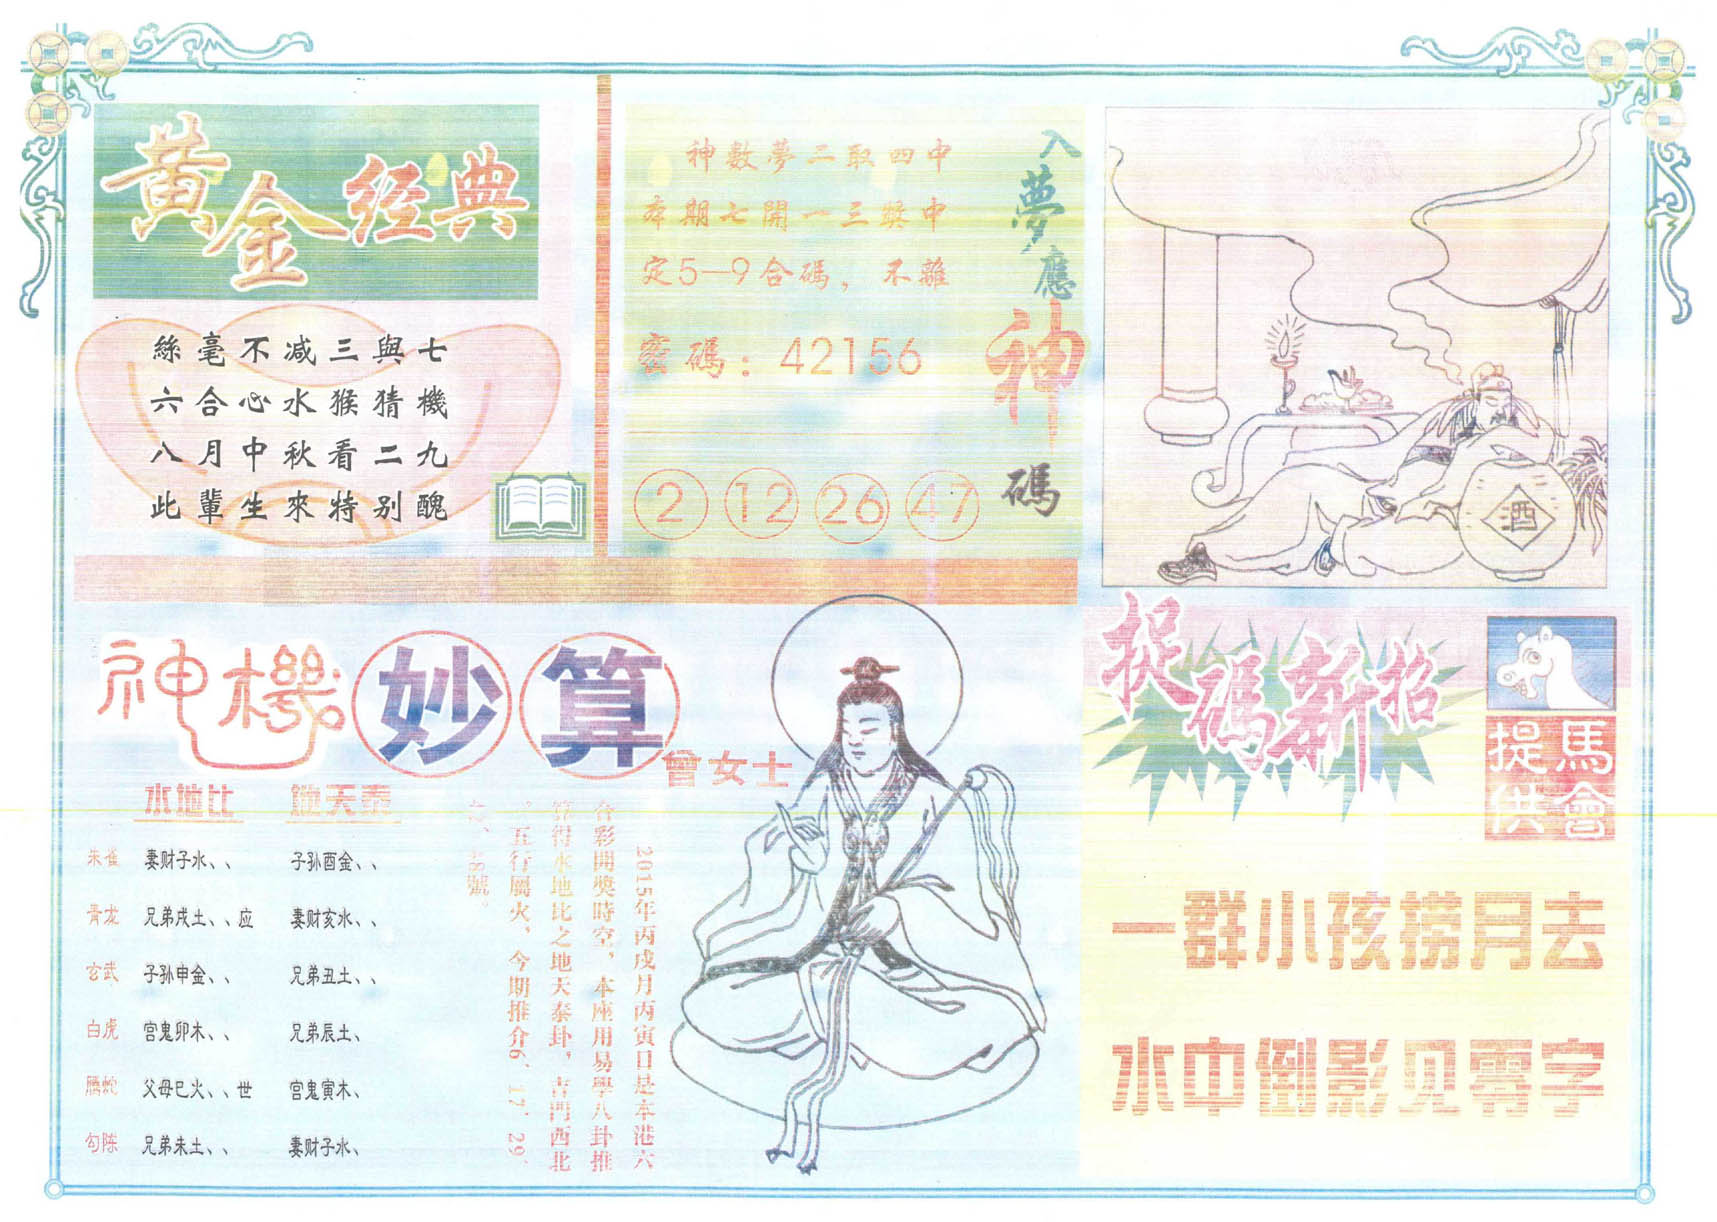 黄金经典
絲毫不减三與七
六合心水猴猜機
八月中秋看二九
此輩生來特别醜
神數夢二取四中
本期七開一三獎中
定5—9合碼，不離
密碼：42156
2 12 26 47
入夢應神碼
酒
神機妙算
曾女士
水地比 地天泰
朱雀 妻财子水、、 子孙酉金、、
青龙 兄弟戌土、、应 妻财亥水、、
玄武 子孙申金、、 兄弟丑土、、
白虎 官鬼卯木、、 兄弟辰土、
螣蛇 父母巳火、、世 官鬼寅木、
勾陈 兄弟未土、、 妻财子水、
2015年丙戌月丙寅日是本港六
合彩開獎時空，本座用易學八卦推
算得水地比之地天泰卦，吉門西北
，五行屬火，今期推介6、17、29、
48號。
捉碼新招
馬會提供
一群小孩捞月去
水中倒影见零字